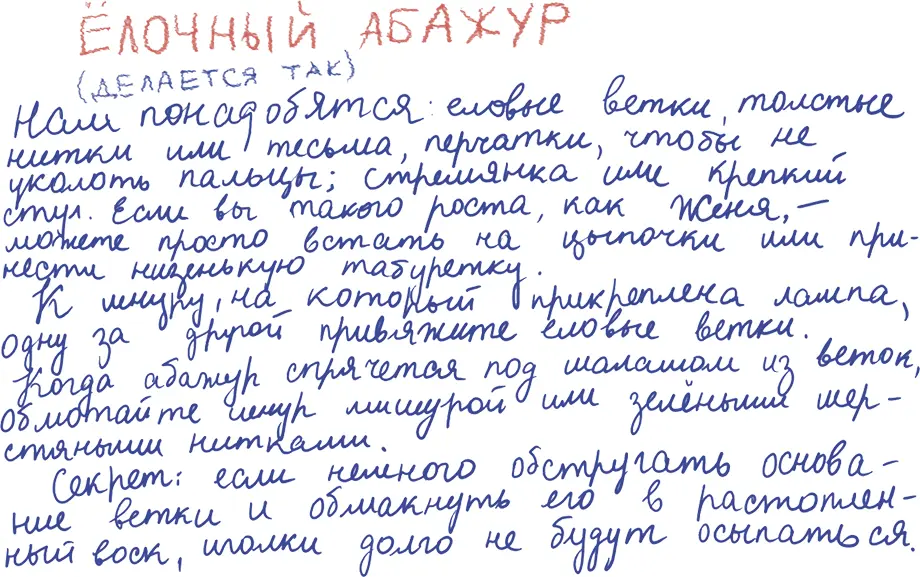 ЁЛОЧНЫЙ АБАЖУР
(ДЕЛАЕТСЯ ТАК)
Нам понадобятся: еловые ветки, толстые
нитки или тесьма, перчатки, чтобы не
уколоть пальцы; стремянка или крепкий
стул. Если вы такого роста, как Женя, —
можете просто встать на цыпочки или при-
нести низенькую табуретку.
К шнуру, на который прикреплена лампа,
одну за другой привяжите еловые ветки.
Когда абажур спрячется под шалашом из веток,
обмотайте шнур мишурой или зелёными шер-
стяными нитками.
Секрет: если немного обстругать основа-
ние ветки и обмакнуть его в растоплен-
ный воск, иголки долго не будут осыпаться.